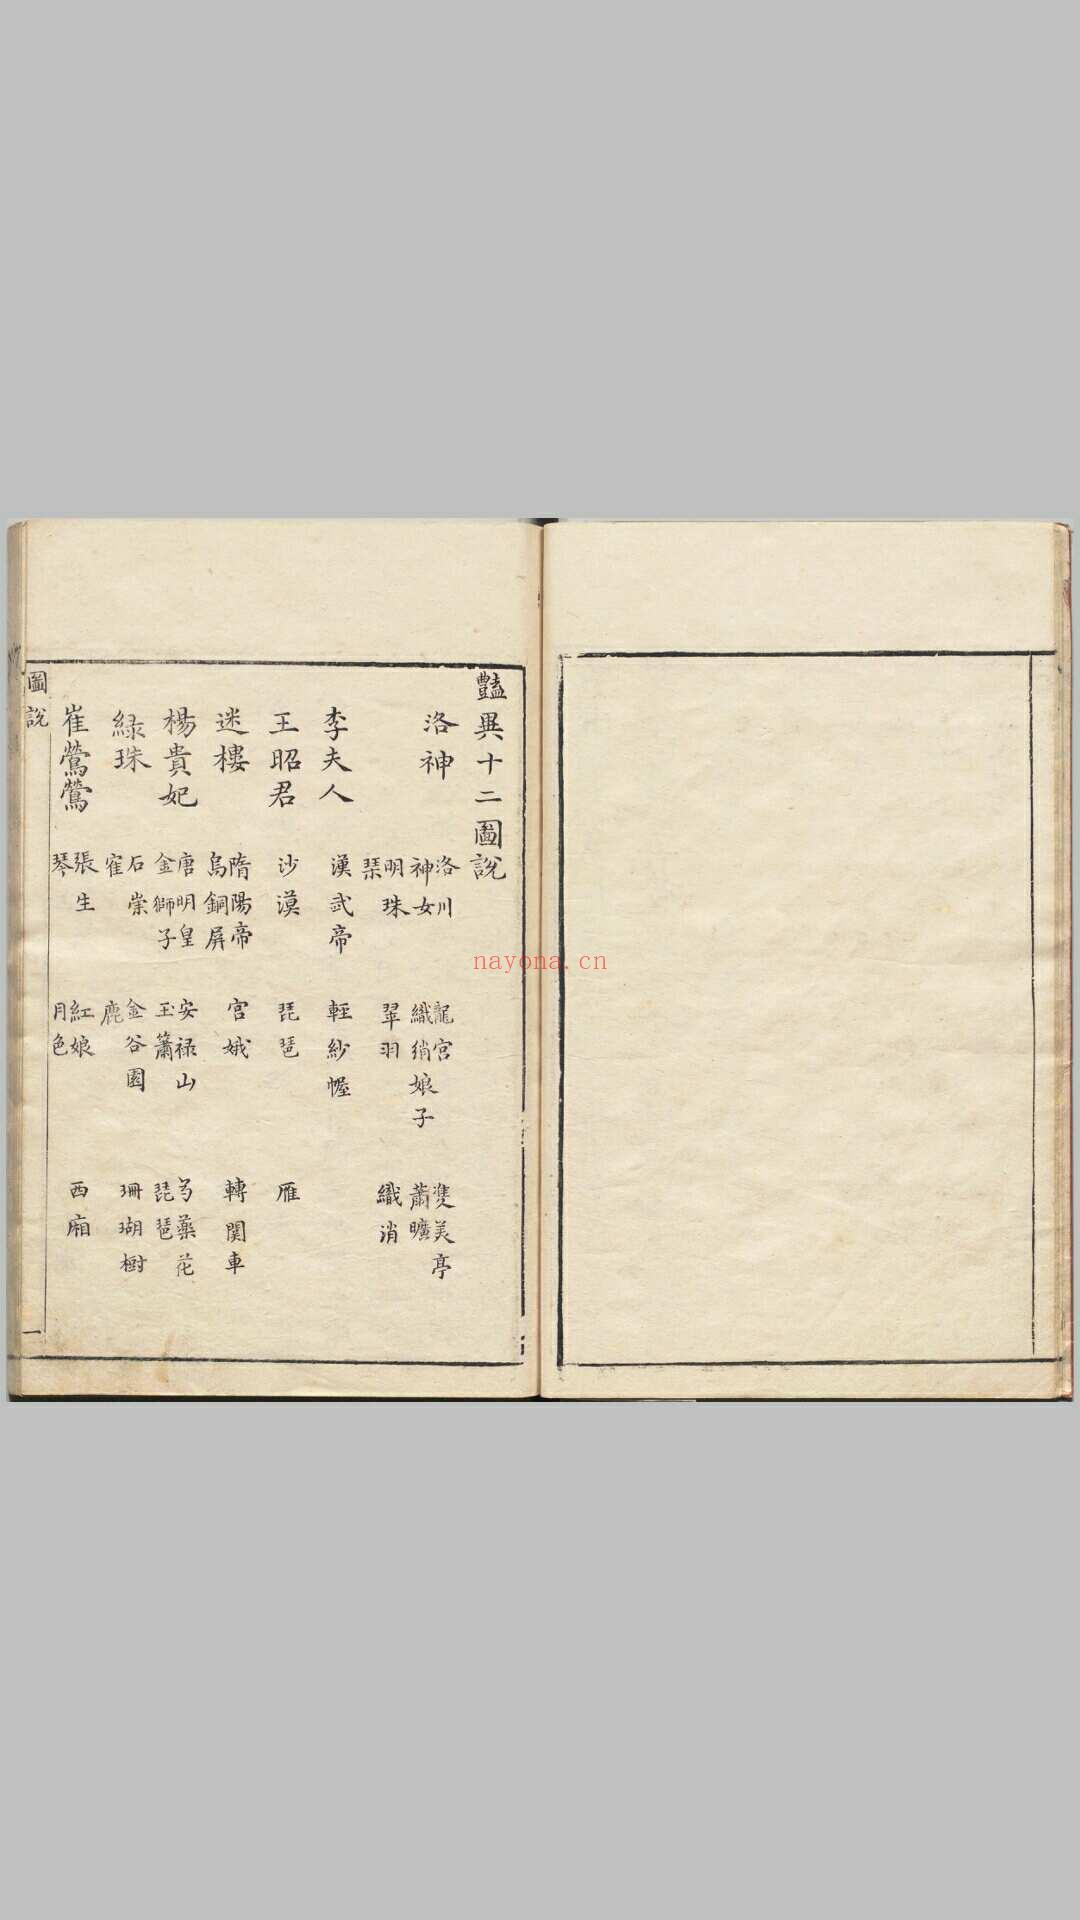 豔異十二圖說
洛神
洛川 龍宮 雙美亭
神女 織綃娘子 蕭曠
明珠 翠羽 織消
琹
李夫人 漢武帝 輕紗幄
王昭君 沙漠 琵琶 雁
迷樓
隋陽帝 宮娥 轉関車
烏銅屏
楊貴妃
唐明皇 安禄山 芍藥花
金獅子 玉簫 琵琶
緑珠
石崇 金谷園 珊瑚樹
寉 鹿
崔鶯鶯
張生 紅娘 西廂
琴 月色
圖說 一
nayona.cn